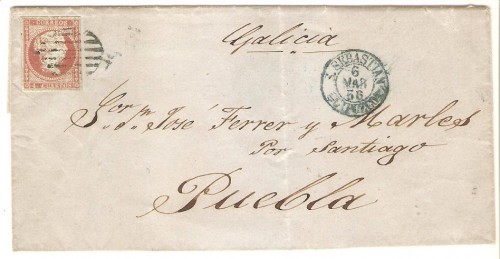 CORREOS
4 CUARTOS
Galicia
S. SEBASTIAN
6
MAR
58
GUIPUZCOA
Sor. Dn. José Ferrer y Marles
Por Santiago
Puebla